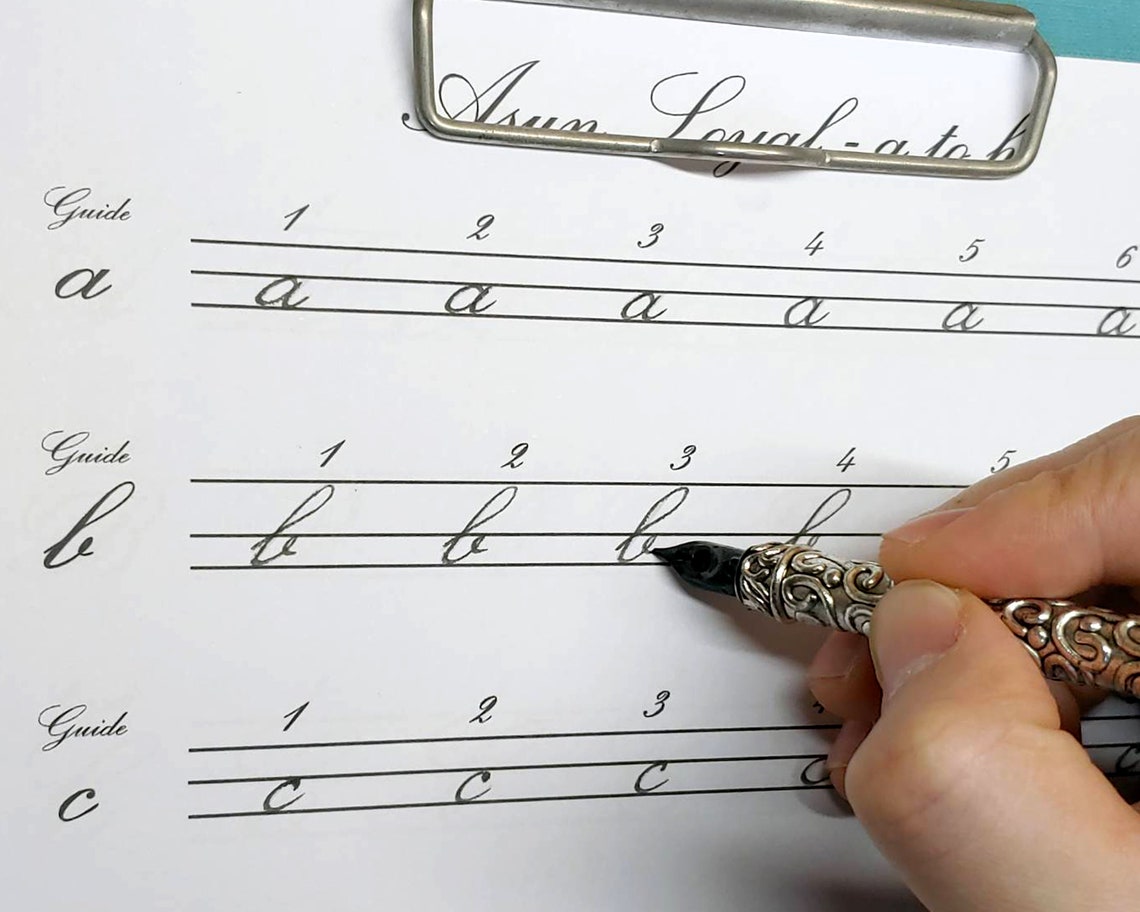 Asun Loyal - a to h
Guide 1 2 3 4 5 6
a a a a a a a
Guide 1 2 3 4 5
b b b b b
Guide 1 2 3
c c c c c c